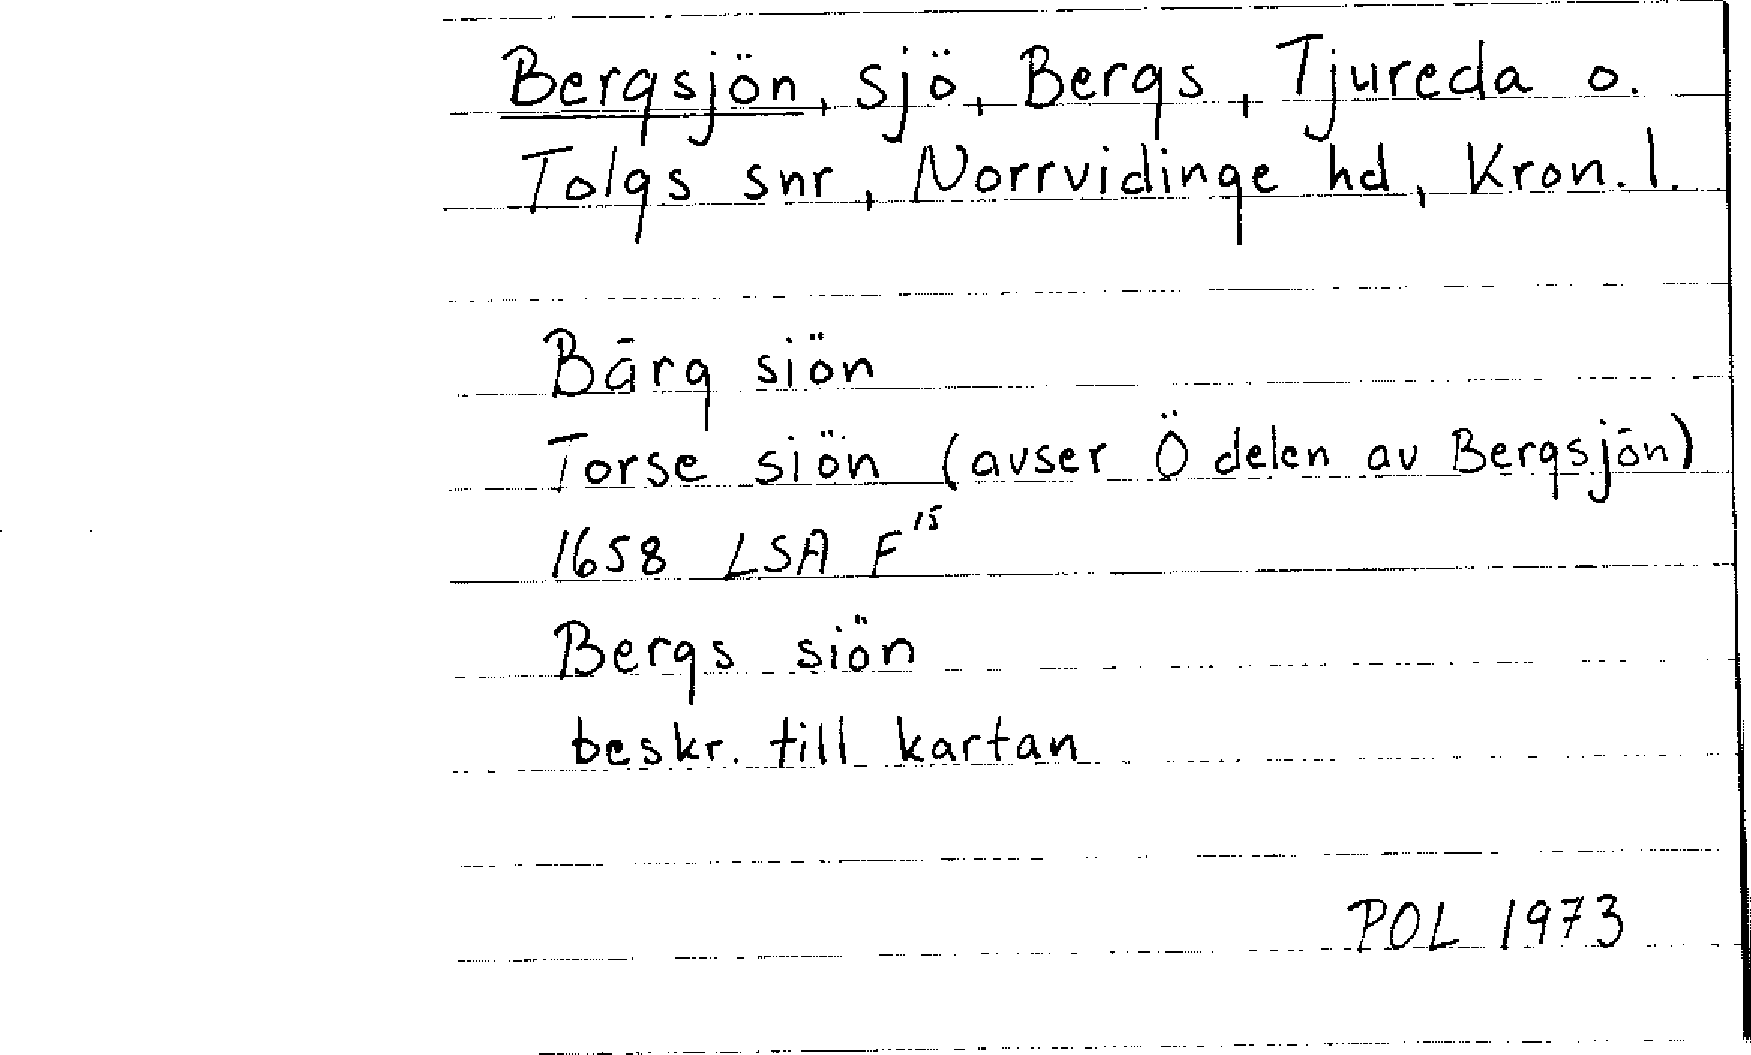 Bergsjön, sjö, Bergs, Tjureda o.
Tolgs snr, Norrvidinge hd, Kron. l.
Bärg siön
Torse siön (avser Ö delen av Bergsjön)
1658 LSA F¹⁵
Bergs siön
beskr. till kartan
POL 1973